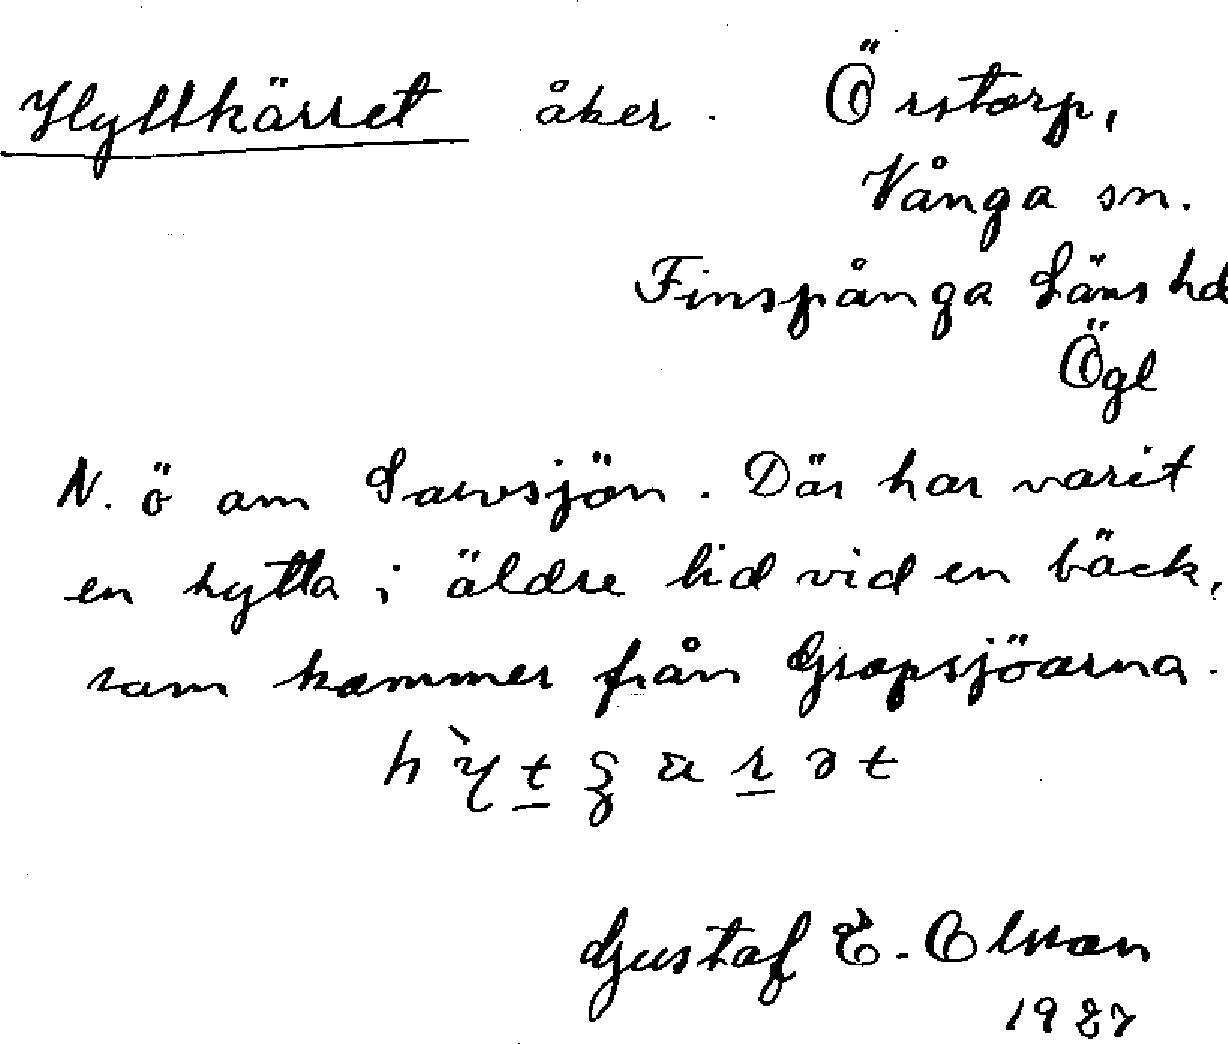 Hyttkärret åker. Örstorp,
Vånga sn.
Finspånga Läns hd
Ögl
N. ö om Larvsjön. Där har varit
en hytta i äldre tid vid en bäck,
som kommer från Gropsjöarna.
Gustaf E. Olsson